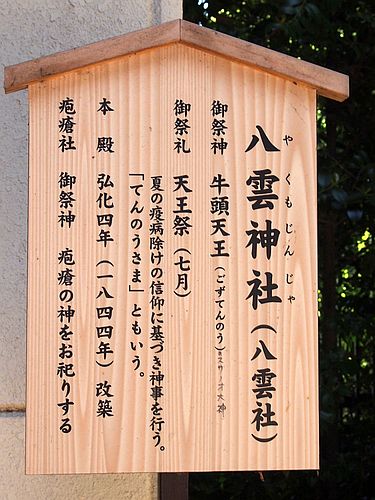 やくもじんじゃ
八雲神社（八雲社）
御祭神 牛頭天王（ごずてんのう）
御祭礼 天王祭（七月）
夏の疫病除けの信仰に基づき神事を行う。
「てんのうさま」ともいう。
本殿 弘化四年（一八四四年）改築
疱瘡社 御祭神 疱瘡の神をお祀りする